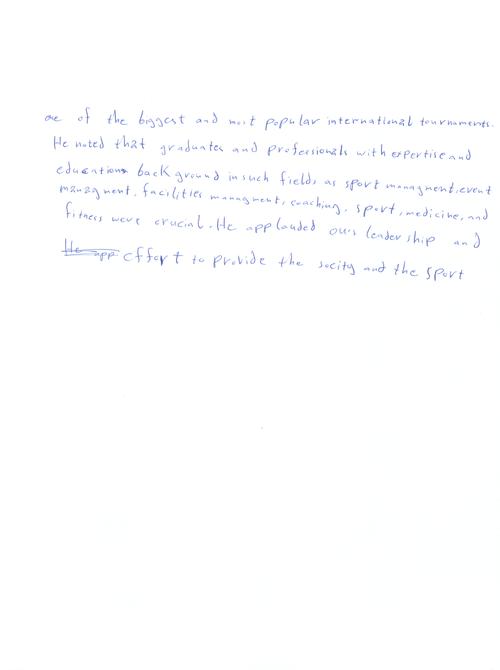 one of the biggest and most popular international tournaments.
He noted that graduates and professionals with expertise and
educations back ground in such fields, as sport managment, event
managment, facilities managment, coaching, sport, medicine, and
fitness were crucial. He applauded our's leader ship and
He app effort to provide the socity and the sport